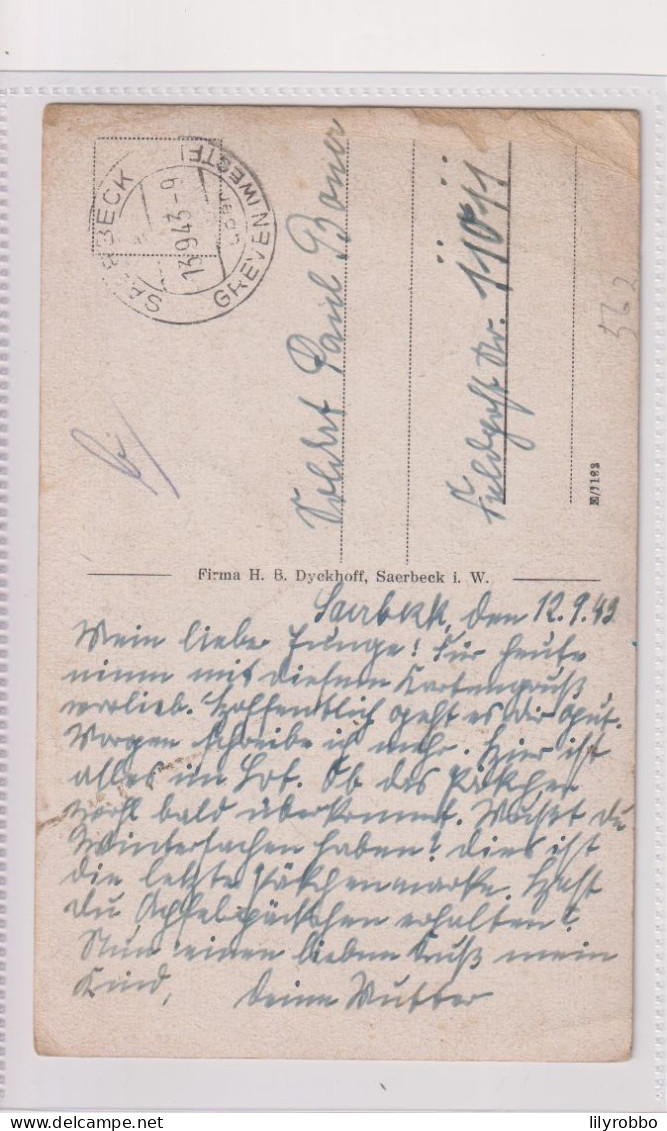 SAERBECK
GREVEN (WESTF
13.9.43-9
Soldat Paul
Feldpost Nr. 11011
562
E/7182
Firma H. B. Dyckhoff, Saerbeck i. W.
Saerbeck, den 12.9.43
Mein lieber Junge! Für heute
nimm mit diesem Kartengruß
vorlieb. Hoffentlich geht es dir gut.
Morgen schreibe ich mehr. Hier ist
alles im Lot. Ob das Päckchen
wohl bald überkommt. Möchst du
Wintersachen haben? Dies ist
die letzte Päckchenmarke. Hast
du Apfelpäckchen erhalten?
Nun einen lieben Gruß mein
Kind, Deine Mutter
lilyrobbo
www.delcampe.net